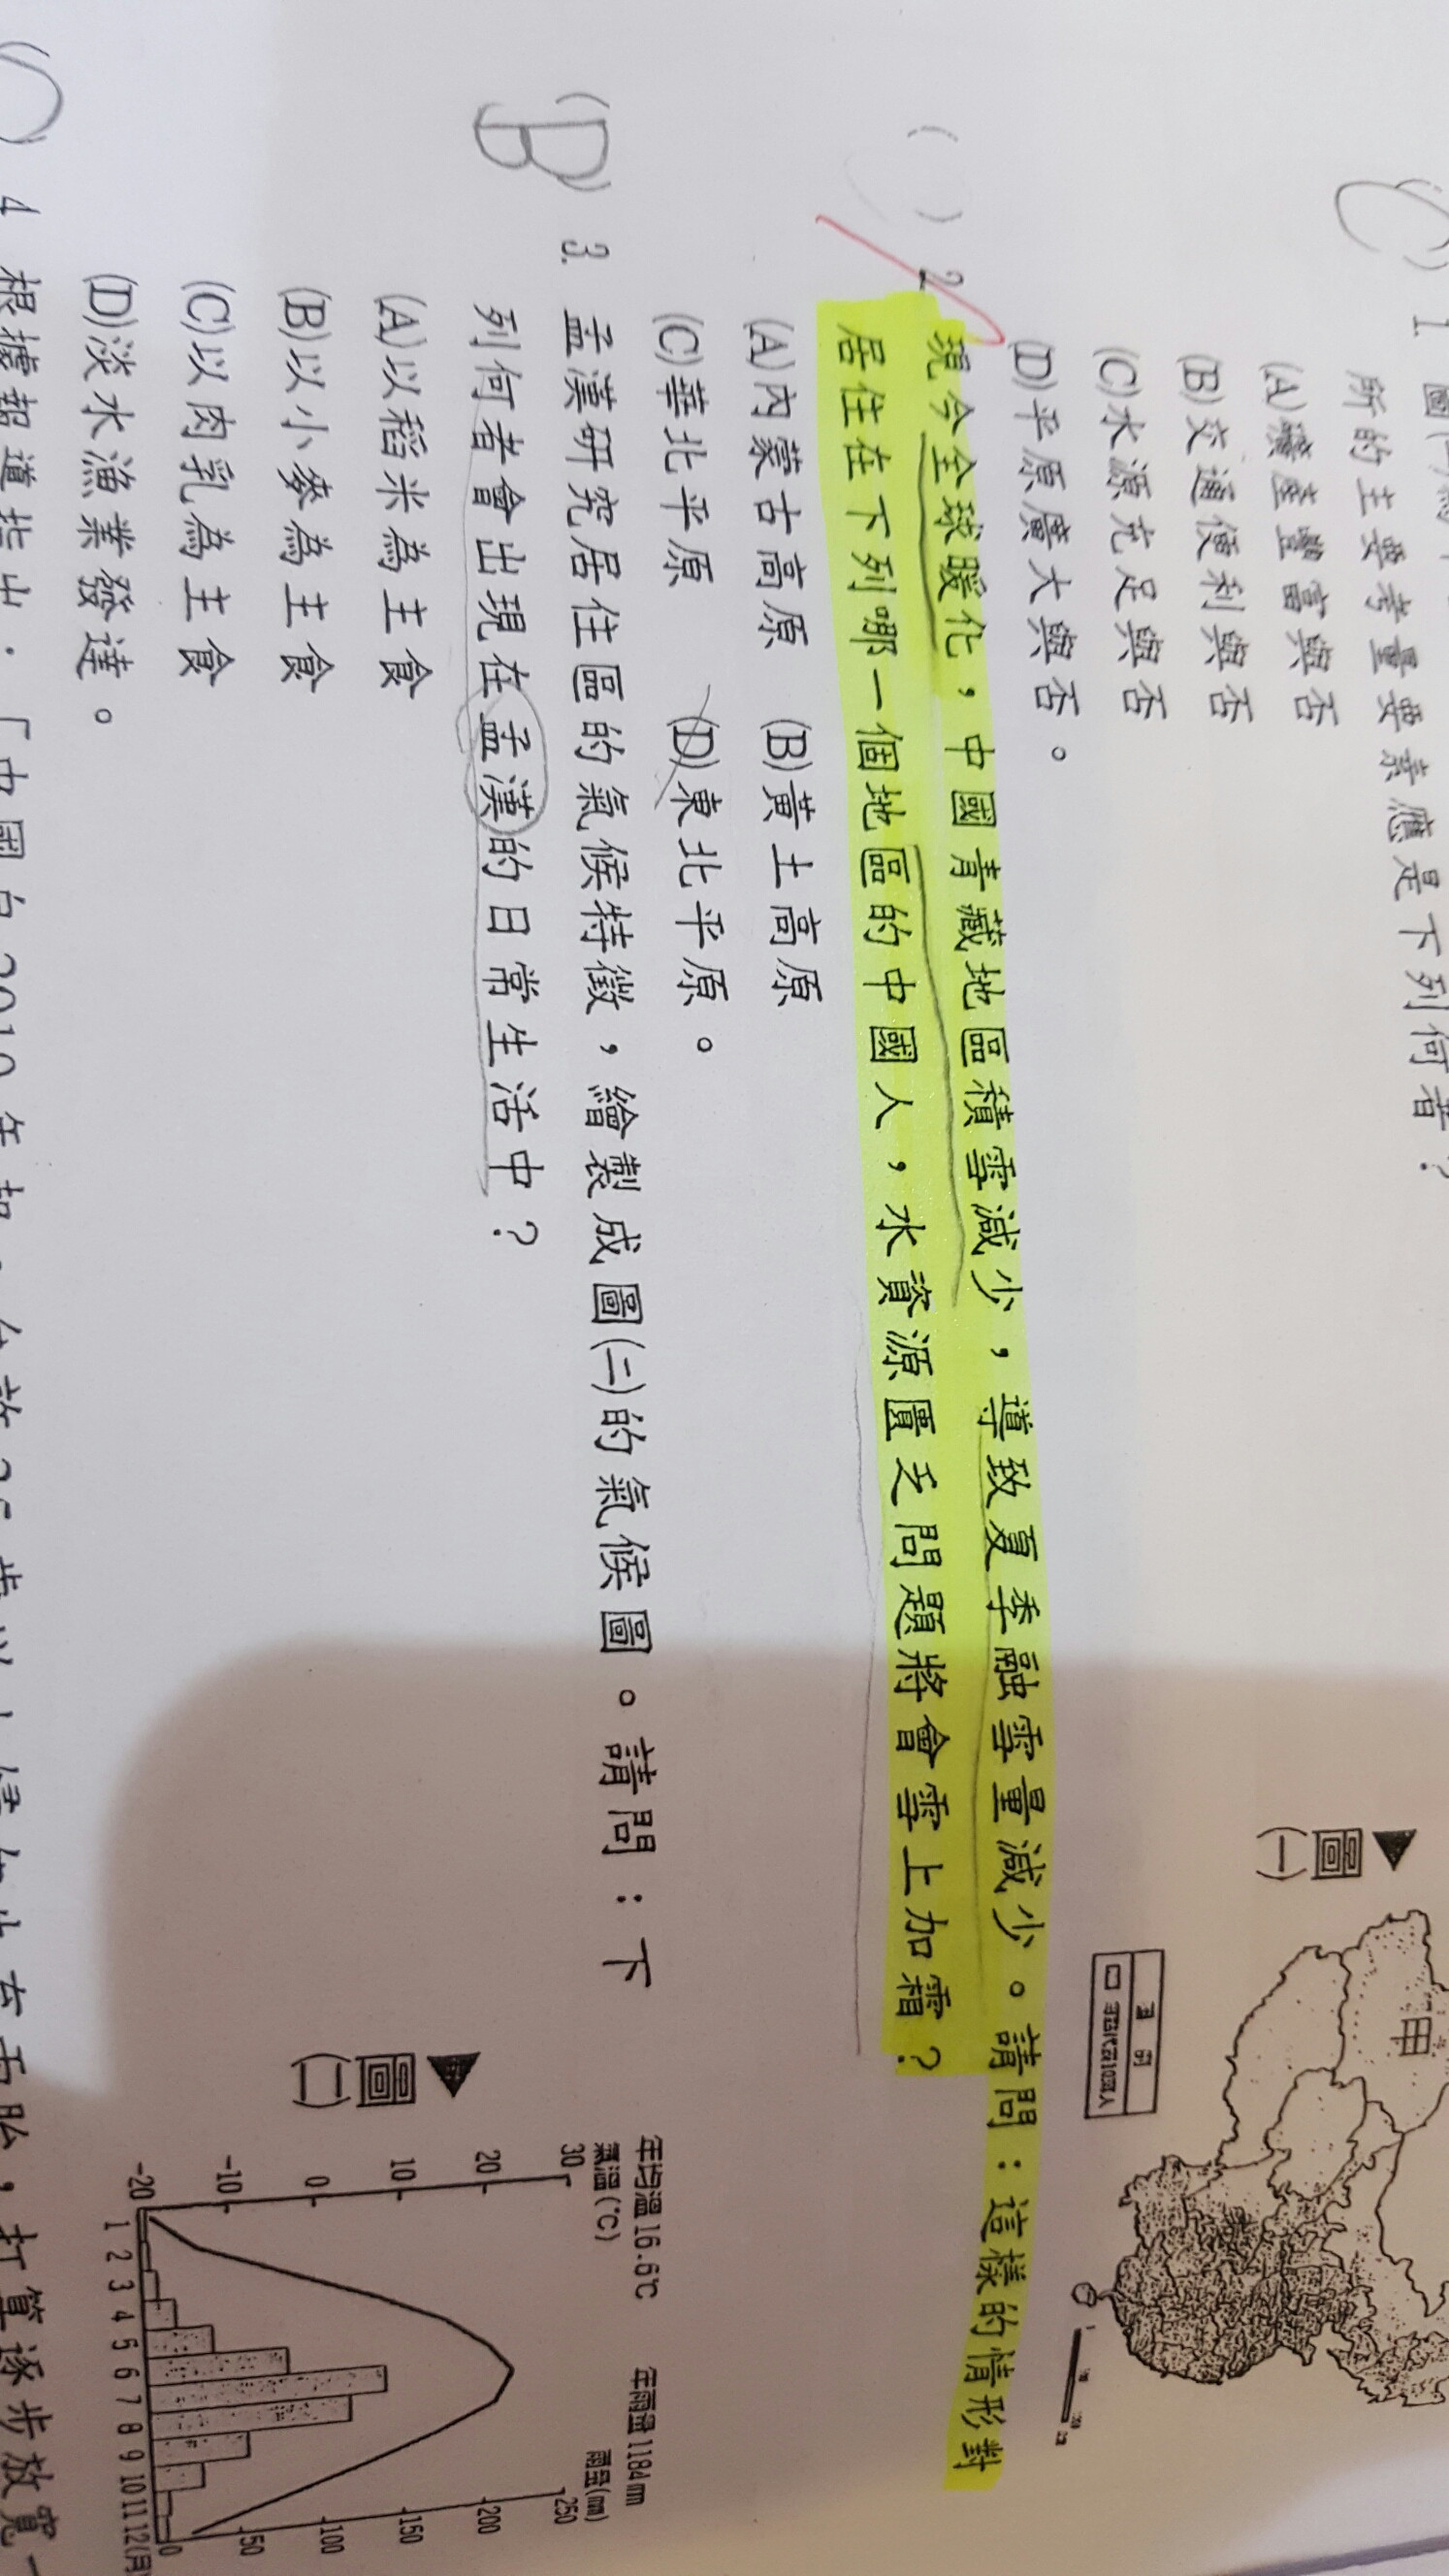 C 1. 圖(一)為
所的主要考量要素應是下列何者？
(A)礦產豐富與否
(B)交通便利與否
(C)水源充足與否
(D)平原廣大與否。
▲圖(一)
甲
( ) 2. 現今全球暖化，中國青藏地區積雪減少，導致夏季融雪量減少。請問：這樣的情形對
居住在下列哪一個地區的中國人，水資源匱乏問題將會雪上加霜？
(A)內蒙古高原 (B)黃土高原
(C)華北平原 (D)東北平原。
(B) 3. 孟漢研究居住區的氣候特徵，繪製成圖(二)的氣候圖。請問：下
列何者會出現在孟漢的日常生活中？
(A)以稻米為主食
(B)以小麥為主食
(C)以肉乳為主食
(D)淡水漁業發達。
▲圖(二)
年均溫16.6℃ 年雨量1184mm
氣溫(℃) 雨量(mm)
30 250
20 200
10 150
0 100
-10 50
-20 0
1 2 3 4 5 6 7 8 9 10 11 12(月
) 4. 根據報道指出：「中國自2019年起，
打算逐步放寬一